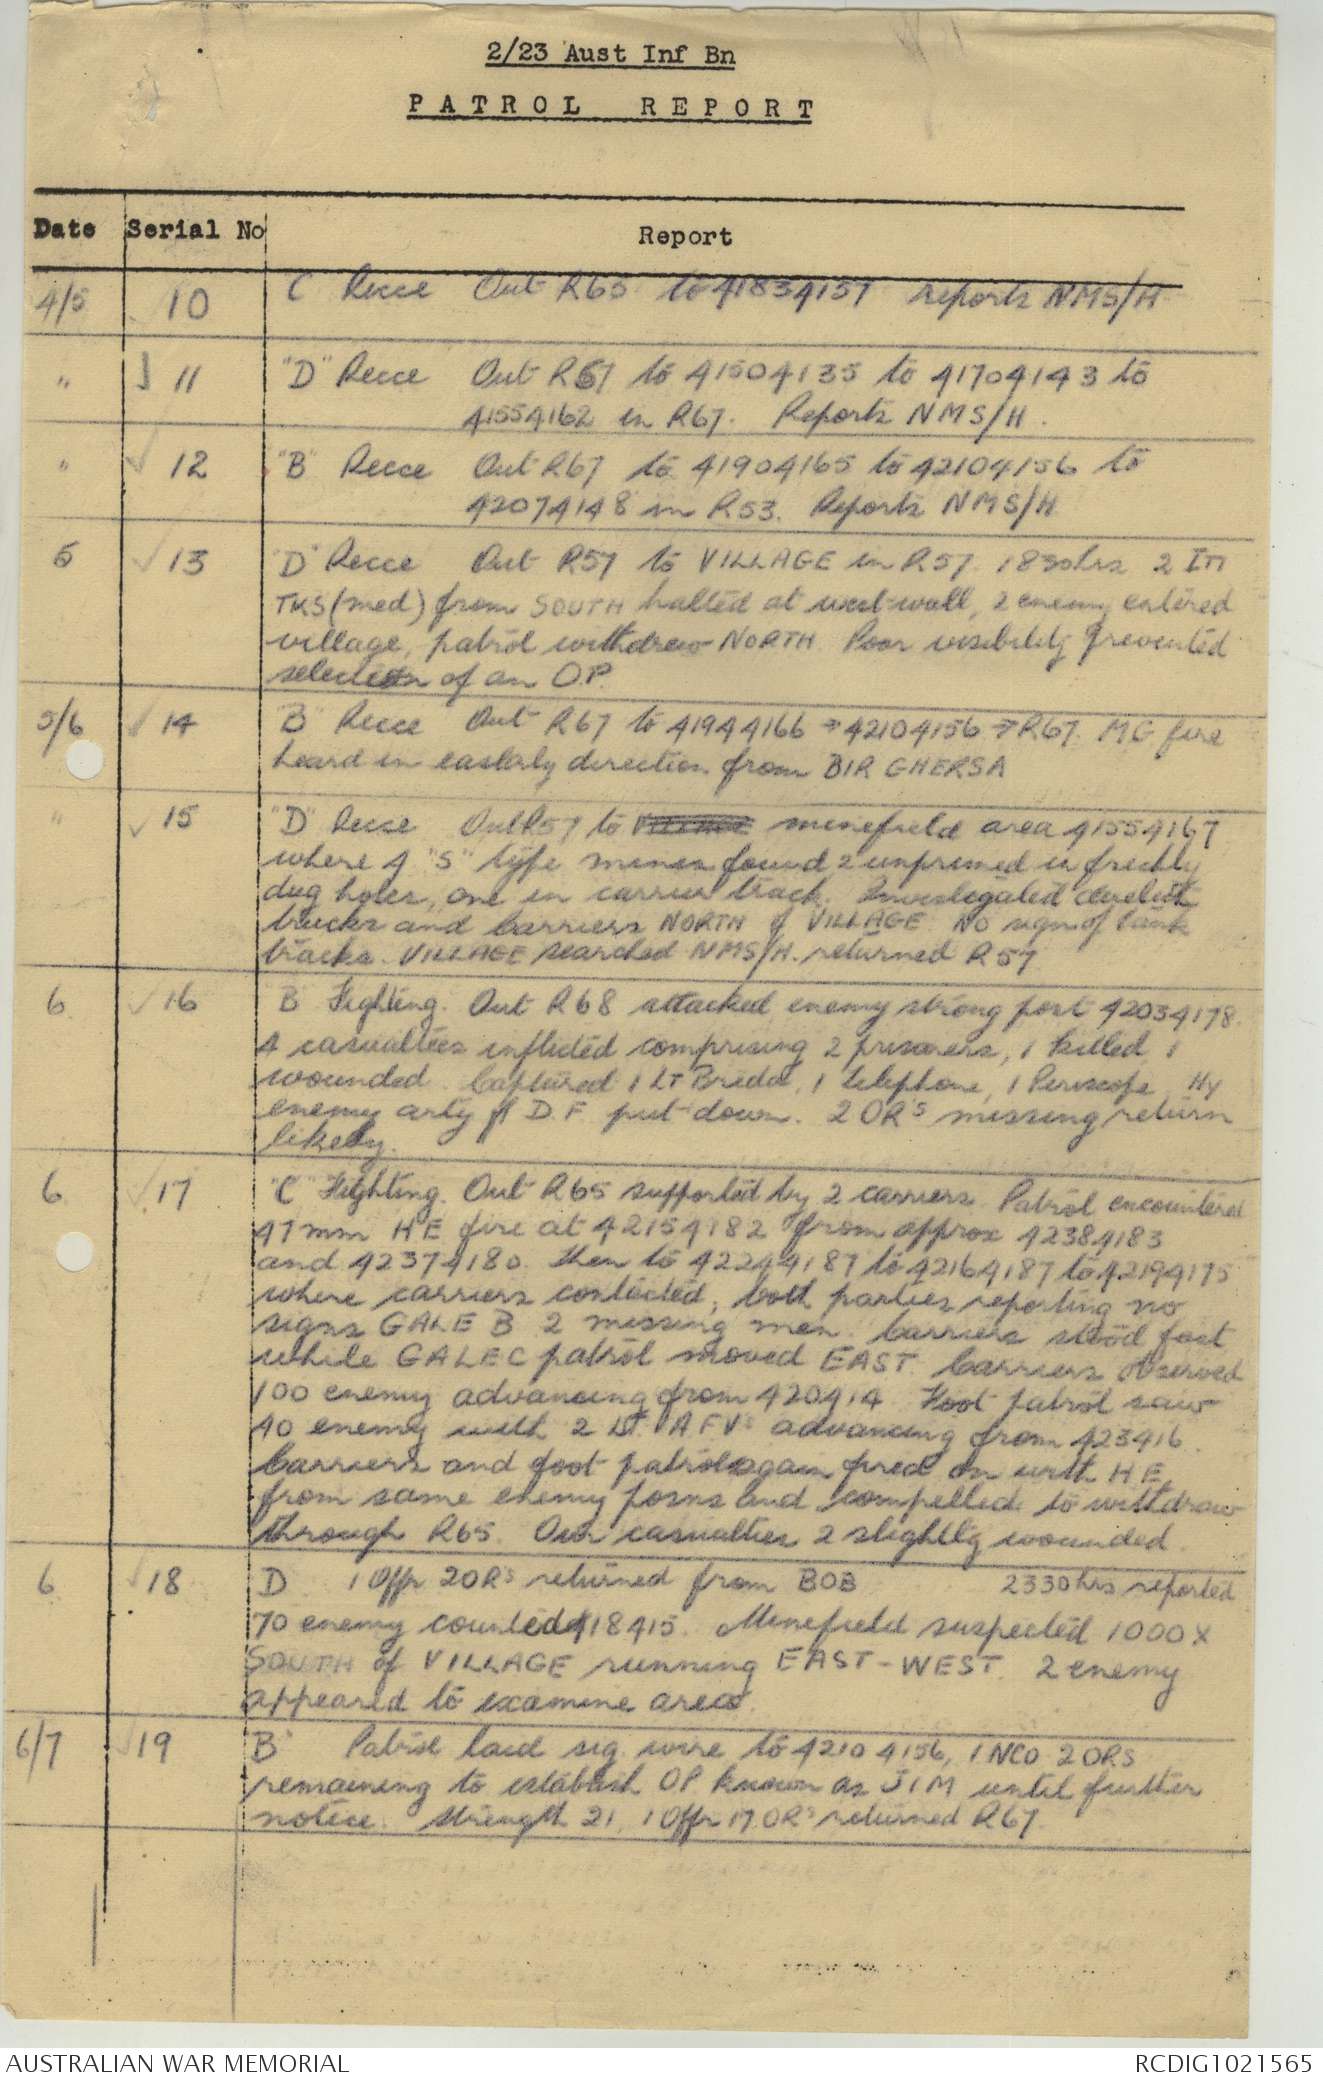 2/23 Aust Inf Bn
PATROL REPORT
Date Serial No Report
4/5 10 C Recce Out R65 to 41834157 reports NMS/H
" 11 "D" Recce Out R67 to 41504135 to 41704143 to
41554162 in R67. Reports NMS/H.
" 12 "B" Recce Out R67 to 41904165 to 42104156 to
42074148 in R53. Reports NMS/H
5 13 "D" Recce Out R57 to VILLAGE in R57. 1830hrs 2 ITI
TKS (med) from SOUTH halted at west wall, 2 enemy entered
village, patrol withdrew NORTH. Poor visibility prevented
selection of an O.P.
5/6 14 "B" Recce Out R67 to 41944166 → 42104156 → R67. MG fire
heard in easterly direction from BIR GHERSA
" 15 "D" Recce Out R57 to minefield area 41554167
where 4 "S" type mines found, 2 unprimed in freshly
dug holes, one in carrier track. Investigated derelict
trucks and carriers NORTH of VILLAGE. No sign of tank
tracks. VILLAGE searched NMS/H. returned R57
6 16 B Fighting. Out R68 attacked enemy strong post 42034178.
4 casualties inflicted comprising 2 prisoners, 1 killed 1
wounded. Captured 1 LT Breda, 1 telephone, 1 Periscope. Hy
enemy arty D.F. put down. 2 OR's missing return
likely.
6 17 "C" Fighting. Out R65 supported by 2 carriers. Patrol encountered
47mm HE fire at 42154182 from approx 42384183
and 42374180. then to 42244187 to 42164187 to 42194175
where carriers contacted, both parties reporting no
signs GALE B 2 missing men. Carriers stood fast
while GALE C patrol moved EAST. Carriers observed
100 enemy advancing from 420414. Foot patrol saw
40 enemy with 2 Lt. AFV's advancing from 423416.
Carriers and foot patrol again fired on with HE
from same enemy posns and compelled to withdraw
through R65. Our casualties 2 slightly wounded.
6 18 D 1 Offr 2 OR's returned from BOB 2330hrs reported
70 enemy counted 418415. Minefield suspected 1000x
SOUTH of VILLAGE running EAST-WEST. 2 enemy
appeared to examine area.
6/7 19 B" Patrol laid sig. wire to 42104156, 1 NCO 2 ORS
remaining to establish OP known as JIM until further
notice. Strength 21, 1 Offr 17 OR's returned R67.
AUSTRALIAN WAR MEMORIAL RCDIG1021565